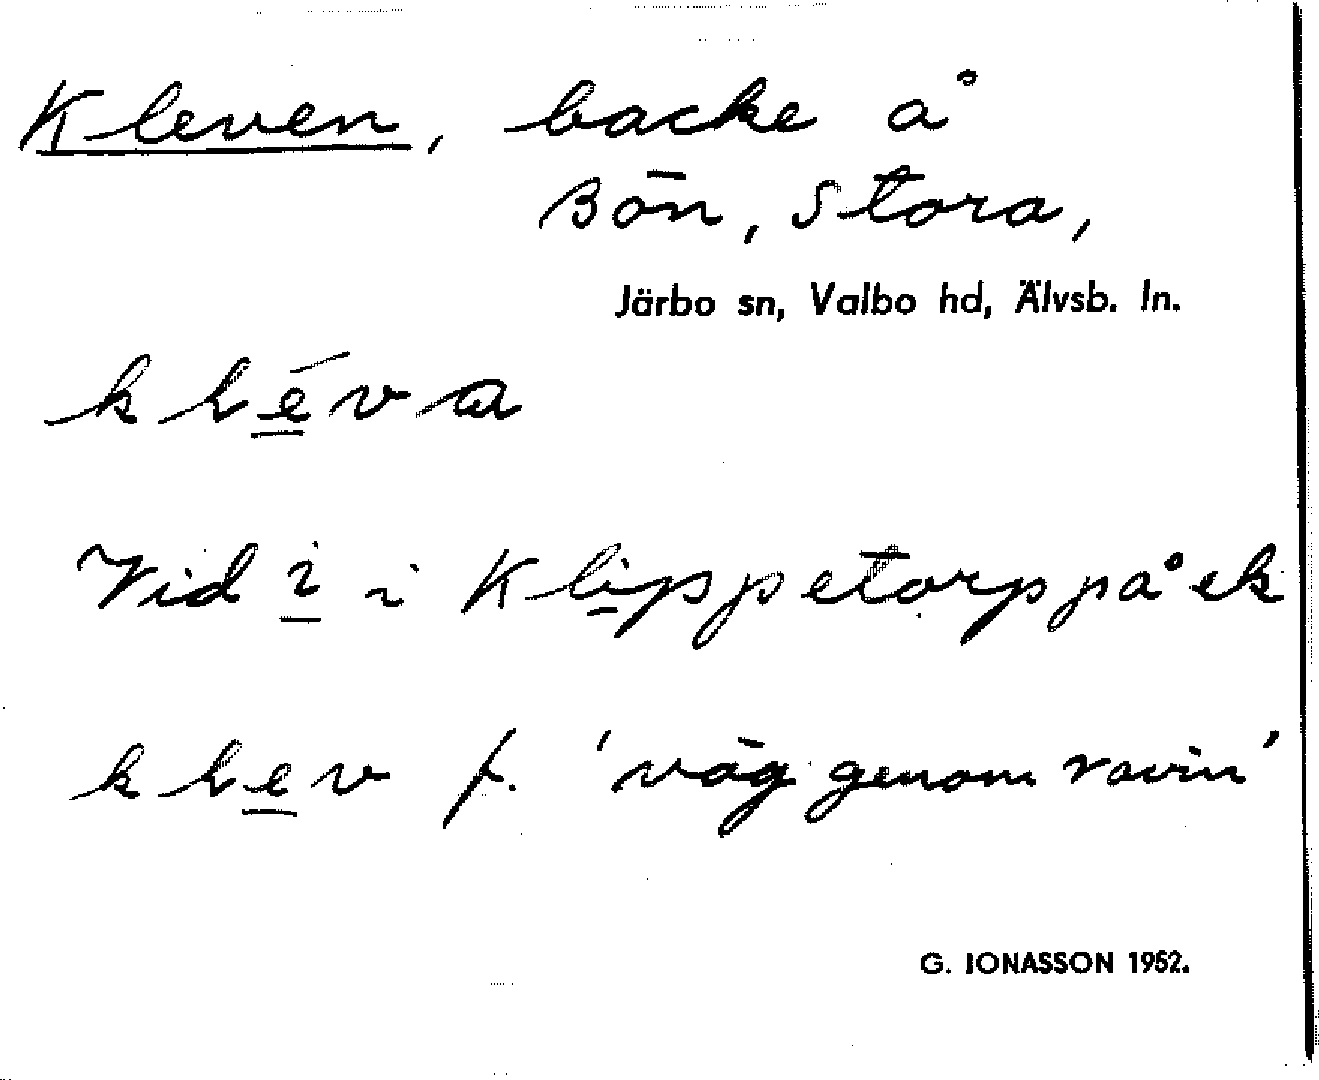 Kleven, backe å
Bön, Stora,
Järbo sn, Valbo hd, Älvsb. ln.
kléva
Vid i i Klippetorp på ek
klev f. 'väg genom ravin'
G. IONASSON 1952.